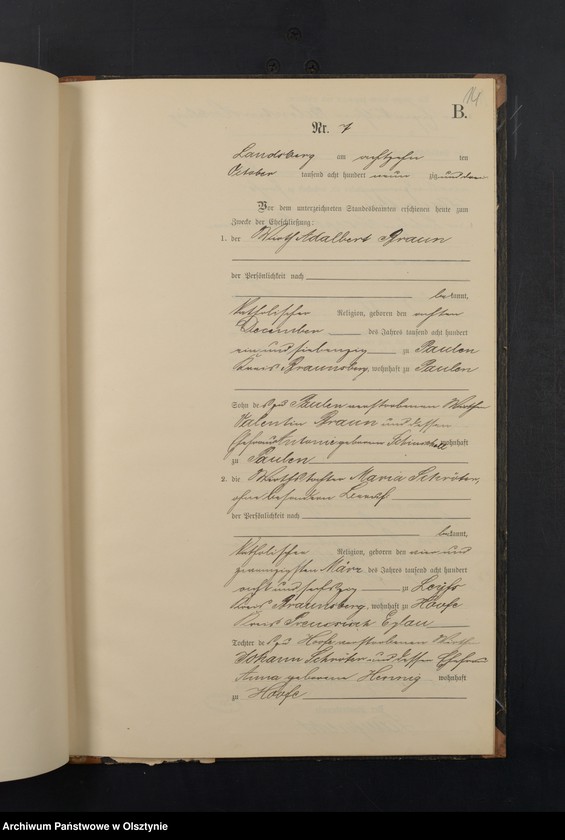 14
B.
Nr. 7
Landsberg am achtzehn ten
October tausend acht hundert neun zig und drei.
Vor dem unterzeichneten Standesbeamten erschienen heute zum
Zwecke der Eheschließung:
1. der Wirth Adalbert Braun
der Persönlichkeit nach
bekannt,
katholischer Religion, geboren den achten
December des Jahres tausend acht hundert
ein und siebenzig zu Paulen
Kreis Braunsberg, wohnhaft zu Paulen
Sohn des zu Paulen verstorbenen Wirths
Valentin Braun und dessen
Ehefrau geborene wohnhaft
zu Paulen
2. die Wirthstochter Maria Schröter,
ohne besonderen Beruf
der Persönlichkeit nach
bekannt,
katholischer Religion, geboren den vier und
zwanzigsten März des Jahres tausend acht hundert
acht und sechszig zu
Kreis Braunsberg, wohnhaft zu Hoofe
Kreis Preussisch Eylau
Tochter des zu Hoofe verstorbenen Wirths
Johann Schröter und dessen Ehefrau
Anna geborene Hennig wohnhaft
zu Hoofe
Archiwum Państwowe w Olsztynie